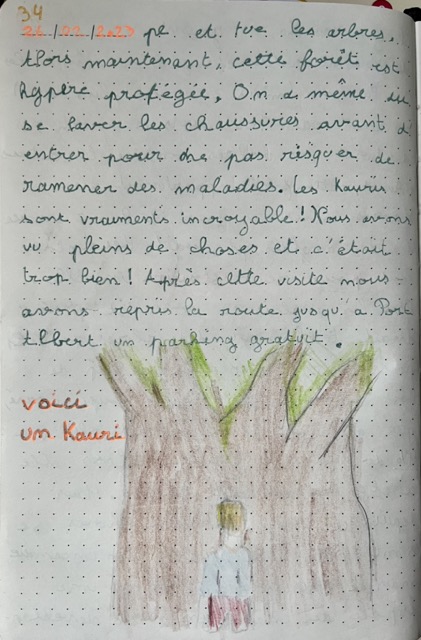 34
26/02/2023 pl et tue les arbres.
Alors maintenant, cette forêt est
hyper protégée, On a même du
se laver les chaussures avant d
entrer pour ne pas risquer de
ramener des maladies. Les Kauris
sont vraiments incroyable! Nous avons
vu pleins de choses et c'était
trop bien! Après cette visite nous
avons repris la route jusqu'a Port
Albert un parking gratuit.
voici
un Kauri